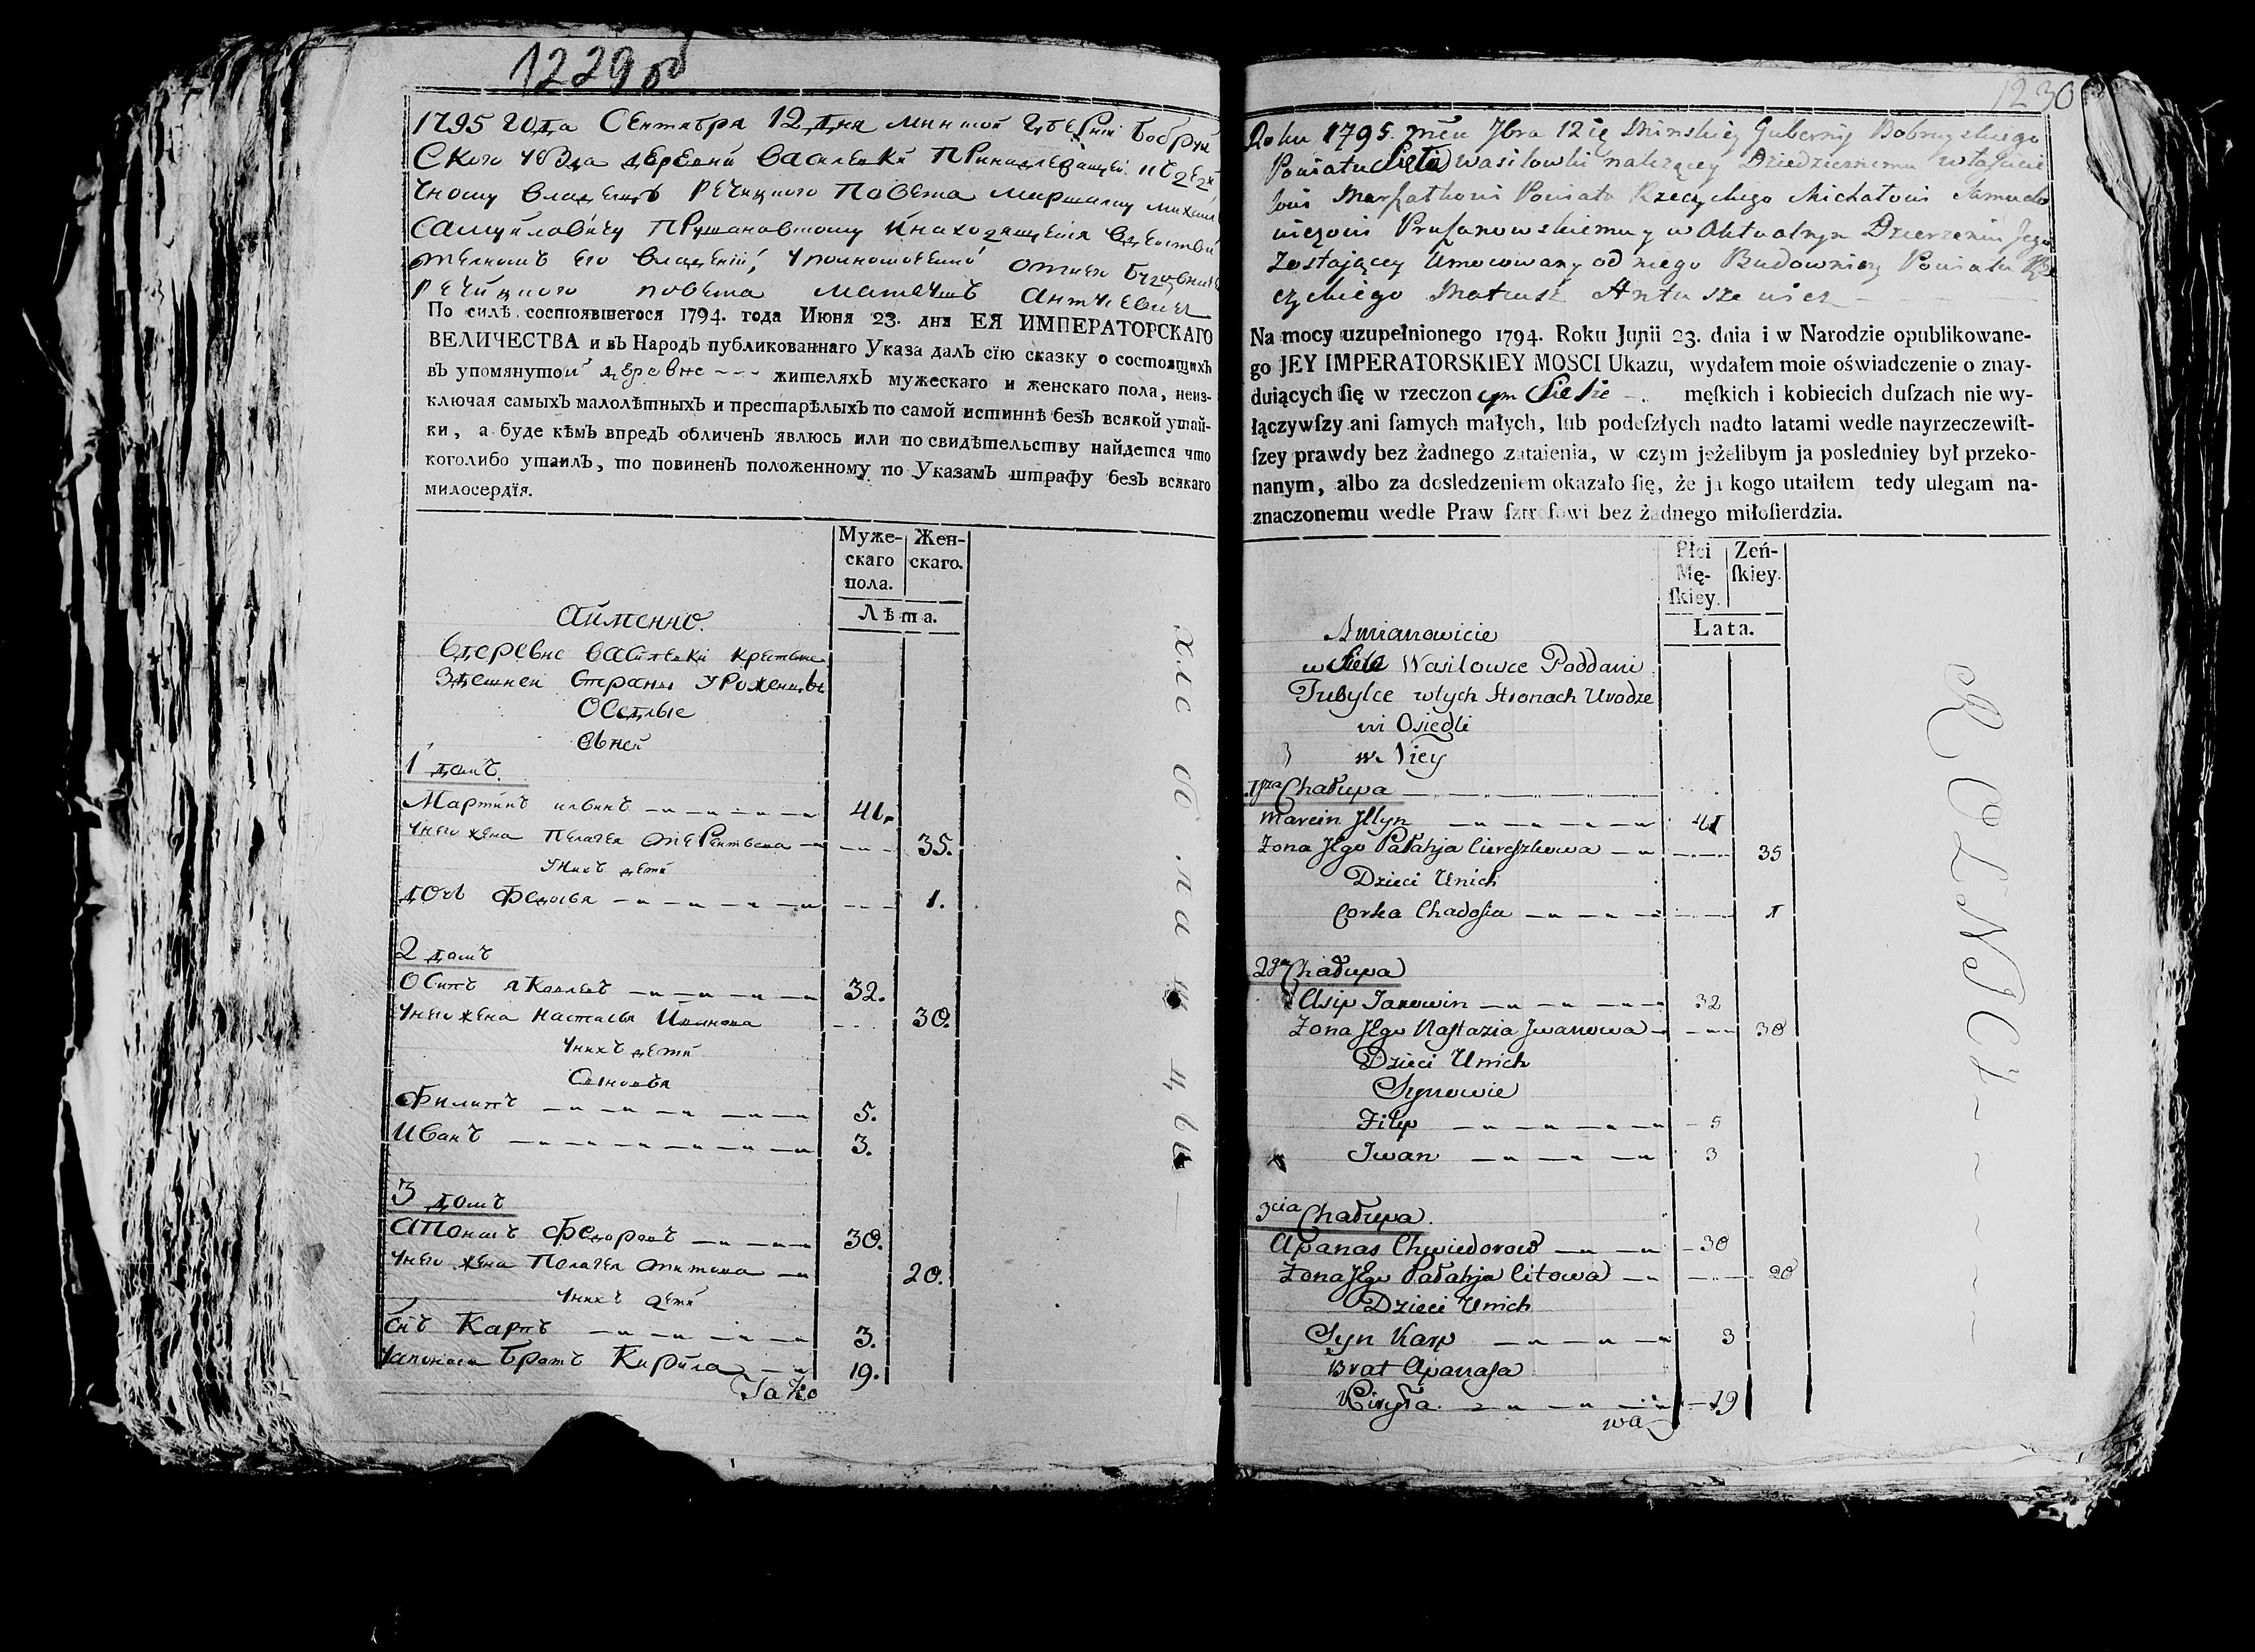 1229 об
1795 года Сентября 12 дня минской губернiи Бобруй
ского уезда деревни Василевки принадлежащей
чному владельцу Речицкого повета маршалку михаил
самуйловичу Прушановскому и находящейся вдействи
тельномъ его владенiи, уполномоченный отнего будовничи
речицкого повета матеушъ антушевичъ
По силѣ состоявшегося 1794. года Июня 23. дня ЕЯ ИМПЕРАТОРСКАГО
ВЕЛИЧЕСТВА и въ Народъ публикованнаго Указа далъ сїю сказку о состоящихъ
въ упомянутой деревне --- жителяхъ мужескаго и женскаго пола, неиз-
ключая самыхъ малолѣтныхъ и престарѣлыхъ по самой истиннѣ безъ всякой утай-
ки, а буде кѣмъ впредъ обличенъ явлюсь или по свидѣтельству найдется что
коголибо утаилъ, то повиненъ положенному по Указамъ штрафу безъ всякаго
милосердїя.
Муже-
скаго
пола.
Жен-
скаго.
Лѣта.
Аименно.
вдеревне Василевки крестьяне
здешней страны уроженцы
оседлые
Овней
1 домъ
Мартинъ ильинъ 41.
унего жена Пелагея Терентьева 35.
уних дети
дочь Федосья 1.
2 домъ
Осипъ яковлевъ 32.
унего жена Настасья Иванова 30.
унихъ дети
Сыновья
Филипъ 5.
Иванъ 3.
3 домъ
апонасъ Федоровъ 30.
унего жена Пелагея титова 20.
унихъ дети
снъ Карпъ 3.
уапонаса братъ Кирила 19.
Тако
1230
Roku 1795. mca 7bra 12 Minskiey Gubernij Bobruyskiego
Powiatu Siela wasilowki nalezącey Dziedzicznemu włascicie
lowi Marszałkowi Powiatu Rzeczyckiego Michałowi Samuelo
wiczowi Prusanowskiemu y w Aktualnym Dzierzeniu Jego
zostającey Umocowany od niego Budowniczy Powiatu Rze
czyckiego Mateusz Antuszewicz
Na mocy uzupełnionego 1794. Roku Junii 23. dnia i w Narodzie opublikowane-
go JEY IMPERATORSKIEY MOSCI Ukazu, wydałem moie oświadczenie o znay-
duiących ſię w rzeczon cym Siele - męſkich i kobiecich duſzach nie wy-
łączywſzy ani ſamych małych, lub podeſzłych nadto latami wedle nayrzeczewiſt-
ſzey prawdy bez żadnego zataienia, w czym jeżelibym ja posledniey był przeko-
nanym, albo za dosledzeniem okazało ſię, że ja kogo utaiłem tedy ulegam na-
znaczonemu wedle Praw ſztrofowi bez żadnego miłoſierdzia.
Płci
Mę-
ſkiey.
Zeń-
ſkiey.
Lata.
Amianowicie
w Siele Wasilowce Poddani
Tubylce wtych Stronach Urodze
ni Osiedli
w Niey
1sza Chałupa
Marcin Jllyn 41
Zona Jego Pałahja Ciereszkowa 35
Dzieci Unich
Corka Chadosia 1
2ga Chałupa
Asip Jakowin 32
Zona Jego Nastazia Jwanowa 30
Dzieci Unich
Synowie
Filip 5
Jwan 3
3cia Chałupa
Apanas Chwiedorow 30
Zona Jego Pałahja Citowa 20
Dzieci Unich
Syn Karp 3
Brat Apanasa
Kiryła 19
wa